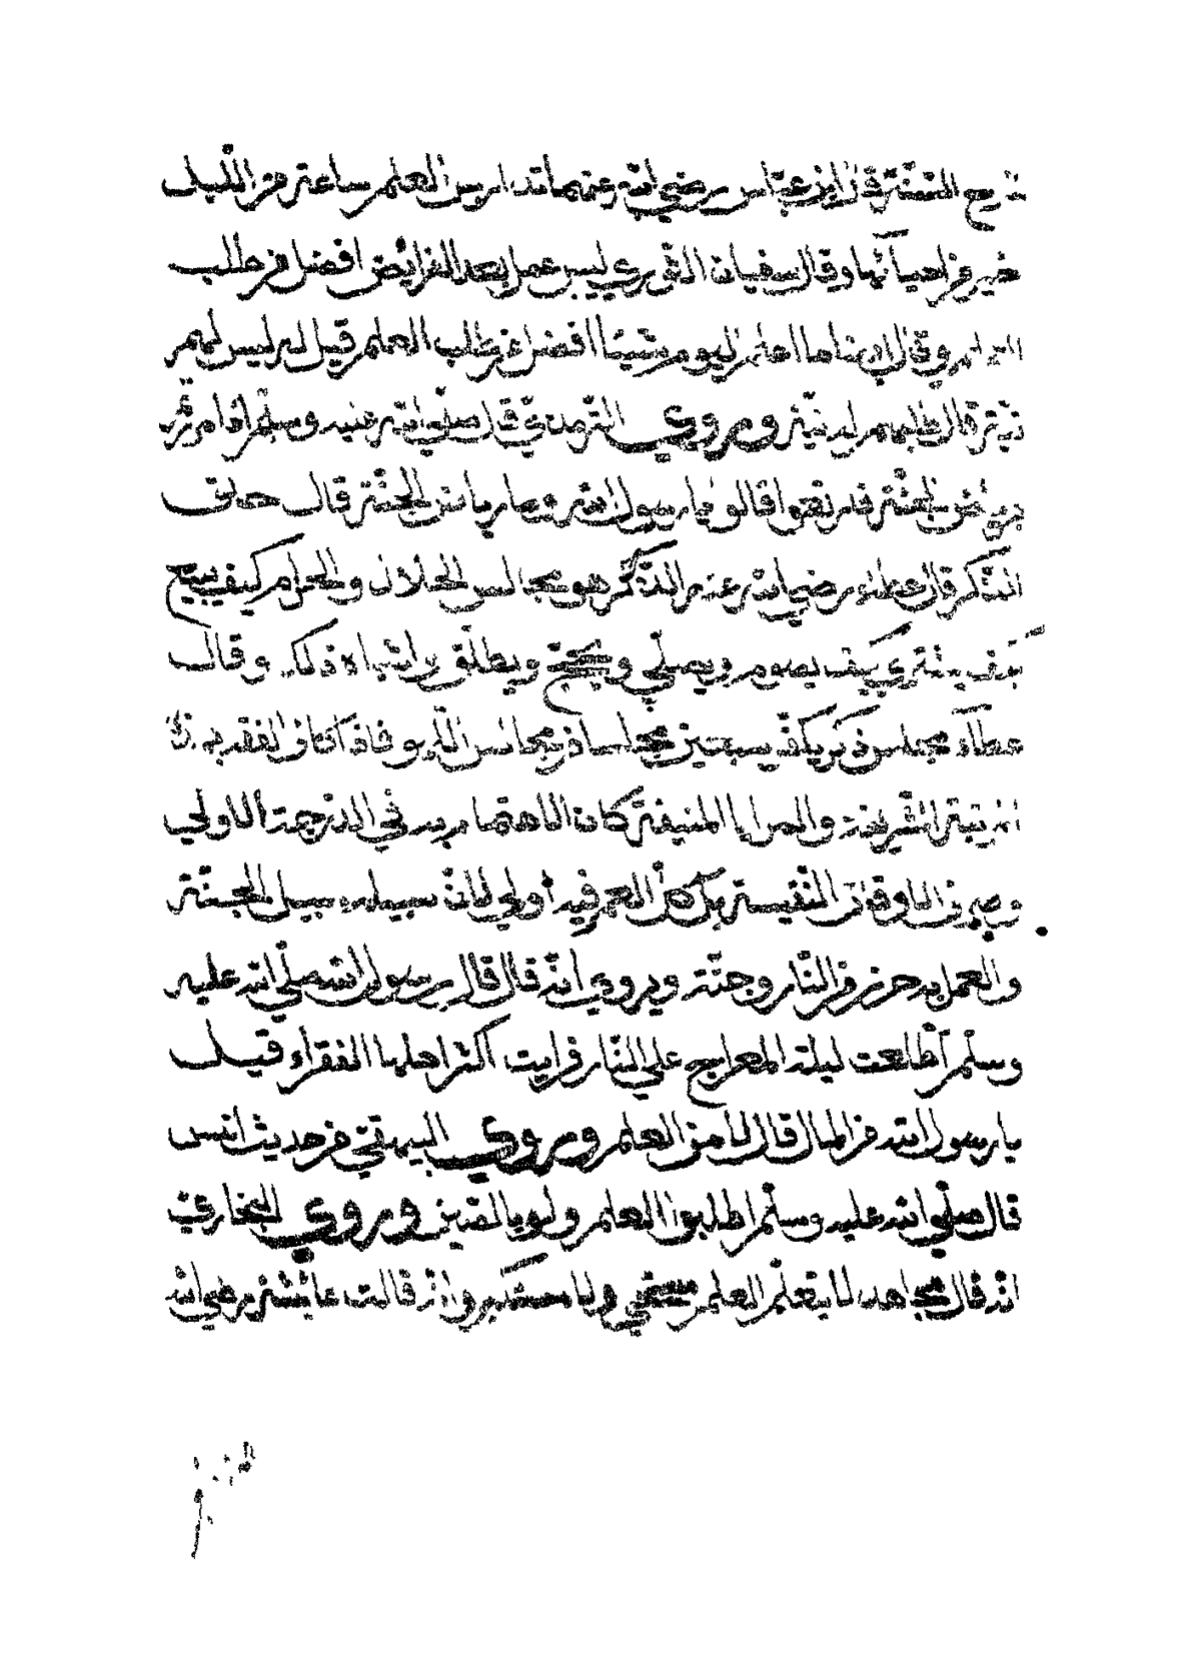 قال ابن عباس رضي الله عنهما تدارس العلم ساعة من الليل
خير من احيآئها وقال سفيان الثوري ليس عمل بعد الفرائض افضل من طلب
العلم وقال ايضا ما اعلم اليوم شيئا افضل من طلب العلم قيل له ليس لهم
نية قال طلبهم له نية وروي الترمذي قال صلي الله عليه وسلم اذا مررتم
برياض الجنة فارتعوا قالوا يا رسول الله وما رياض الجنة قال حلق
الذكر قال عطاء رضي الله عنه الذكر هو مجالس الحلال والحرام كيف يبيع
كيف يشتري كيف يصوم ويصلي ويحج ويطلق واشباه ذلك وقال
عطآء مجلس ذكر يكفر سبعين مجلسا من مجالس اللهو فاذا كان الفقه بهذه
المرتبة الشريفة والمزايا المنيفة كان الاهتمام به في الدرجة الاولي
وصرف الاوقات النفيسة بل كل العمر فيه أولي لان سبيله سبيل الجنة
والعمل به حرز من النار وجنة ويروي انه قال قال رسول الله صلي الله عليه
وسلم اطلعت ليلة المعراج علي النار فرايت اكثر اهلها الفقراء قيل
يا رسول الله من المال قال لا من العلم وروي البيهقي من حديث انس
قال صلي الله عليه وسلم اطلبوا العلم ولو بالصين وروي البخاري
انه قال مجاهد لا يتعلم العلم مستحي ولا مستكبر وانه قالت عائشة رضي الله